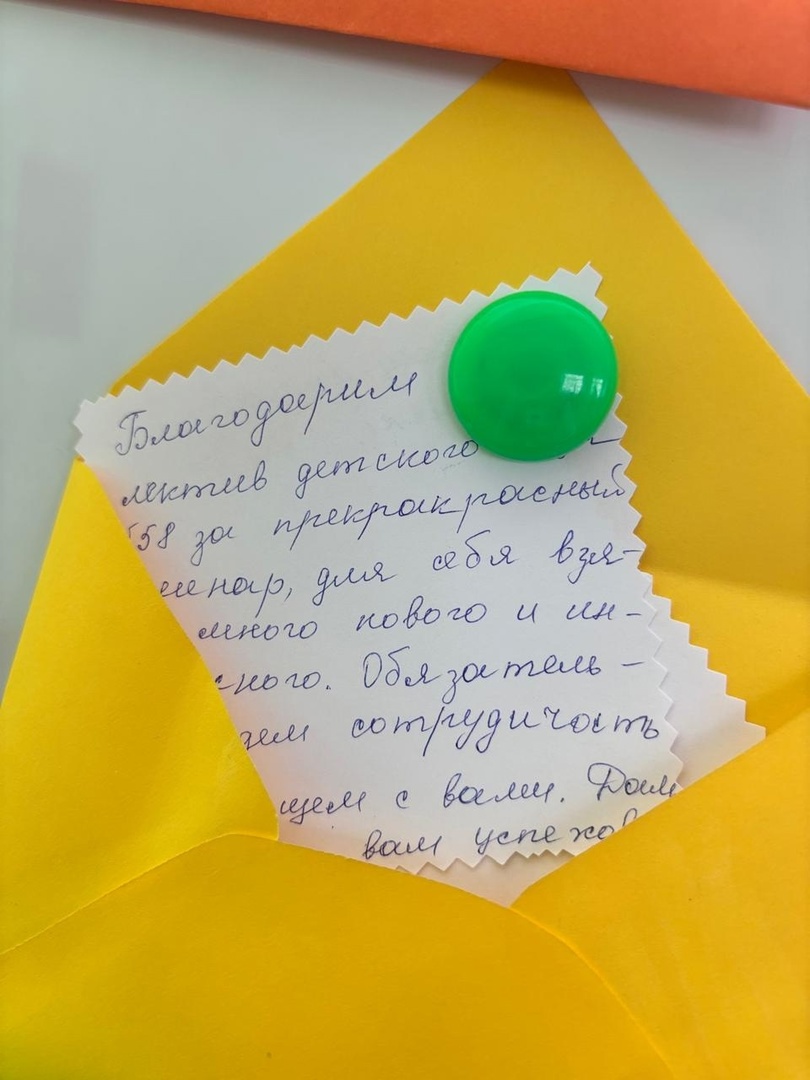 Благодарим
лектив детского
558 за прекракрасный
енар, для себя взя-
много нового и ин-
сного. Обязатель-
ем сотрудичасть
щем с вами. Дальн
вам успехов